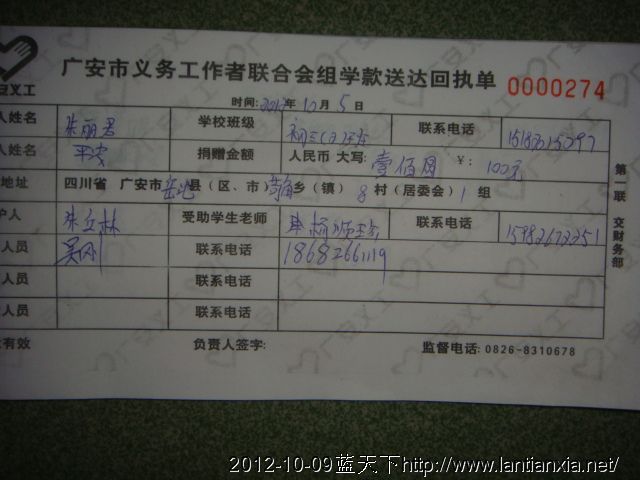 安义工
广安市义务工作者联合会组学款送达回执单 0000274
时间:2012年10月5日
人姓名 朱丽君 学校班级 联系电话
人姓名 平安 捐赠金额 人民币 大写: 壹佰圆 ¥: 100元
地址 四川省 广安市岳池县(区、市) 乡(镇) 8村(居委会) 1组
户人 朱立林 受助学生老师 联系电话 15982672251
人员 吴刚 联系电话 18682661119
人员 联系电话
人员 联系电话
有效 负责人签字: 监督电话: 0826-8310678
第一联 交财务部
2012-10-09蓝天下http://www.lantianxia.net/